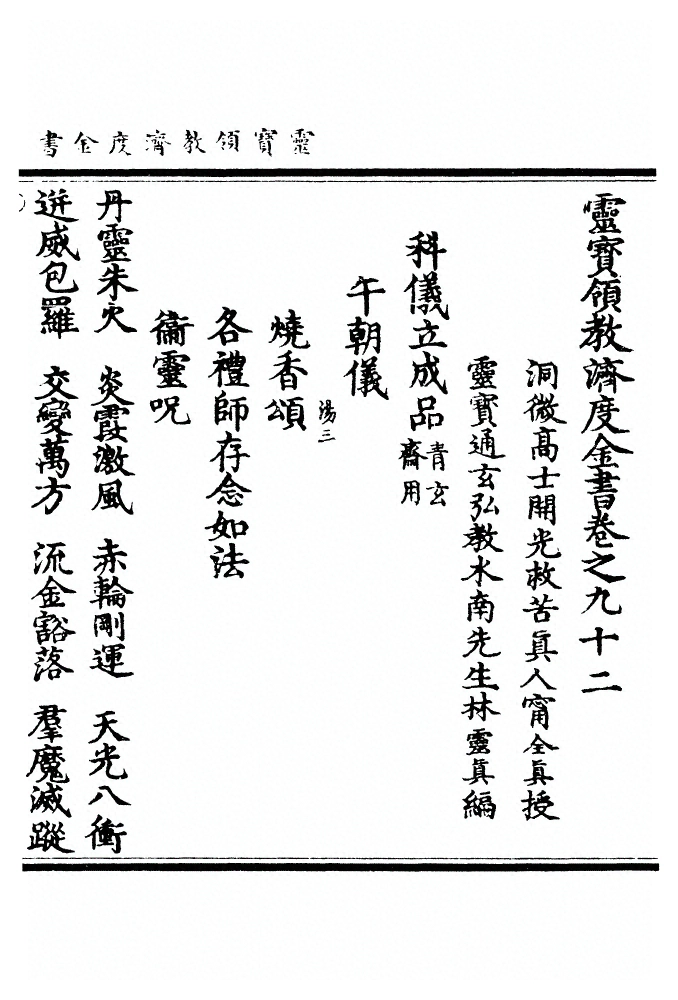 靈寳領教濟度金書
靈寳領教濟度金書卷之九十二
洞微高士開光救苦眞人甯全眞授
靈寳通玄弘教水南先生林靈眞編
科儀立成品 青玄齋用
午朝儀
燒香頌 湯三
各禮師存念如法
衞靈呪
丹靈朱火 炎霞激風 赤輪剛運 天光八衝
迸威包羅 交變萬方 流金豁落 羣魔滅蹤